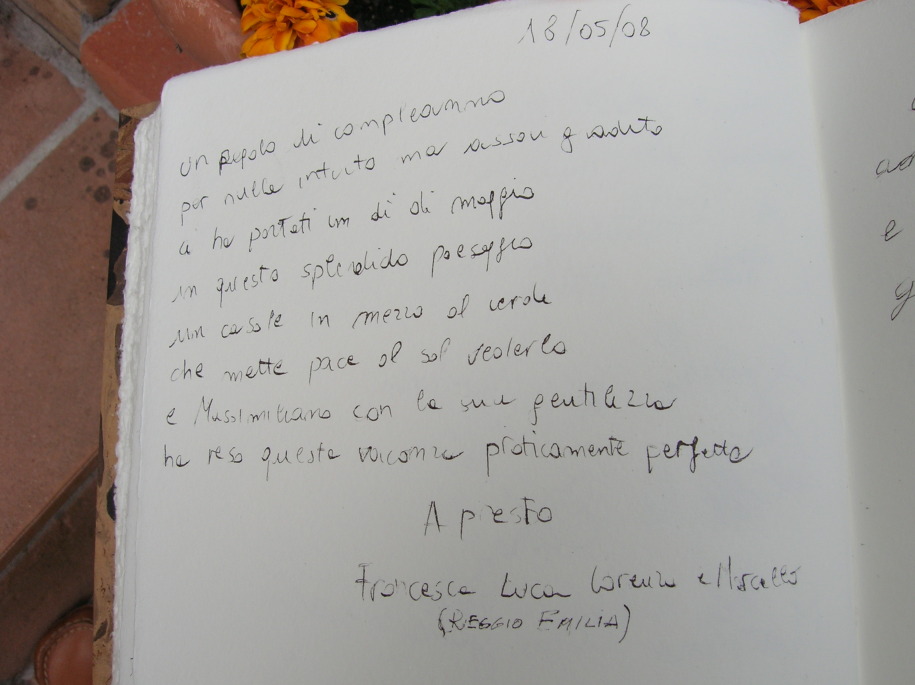 18/05/08
un regalo di compleanno
per nulla intuito ma assai gradito
ci ha portati un dì di maggio
in questo splendido paesaggio
un casale in mezzo al verde
che mette pace al sol vederlo
e Massimiliano con la sua gentilezza
ha reso questa vacanza praticamente perfetta
A presto
Francesca Luca Lorenzo e Marcello
(REGGIO EMILIA)
e